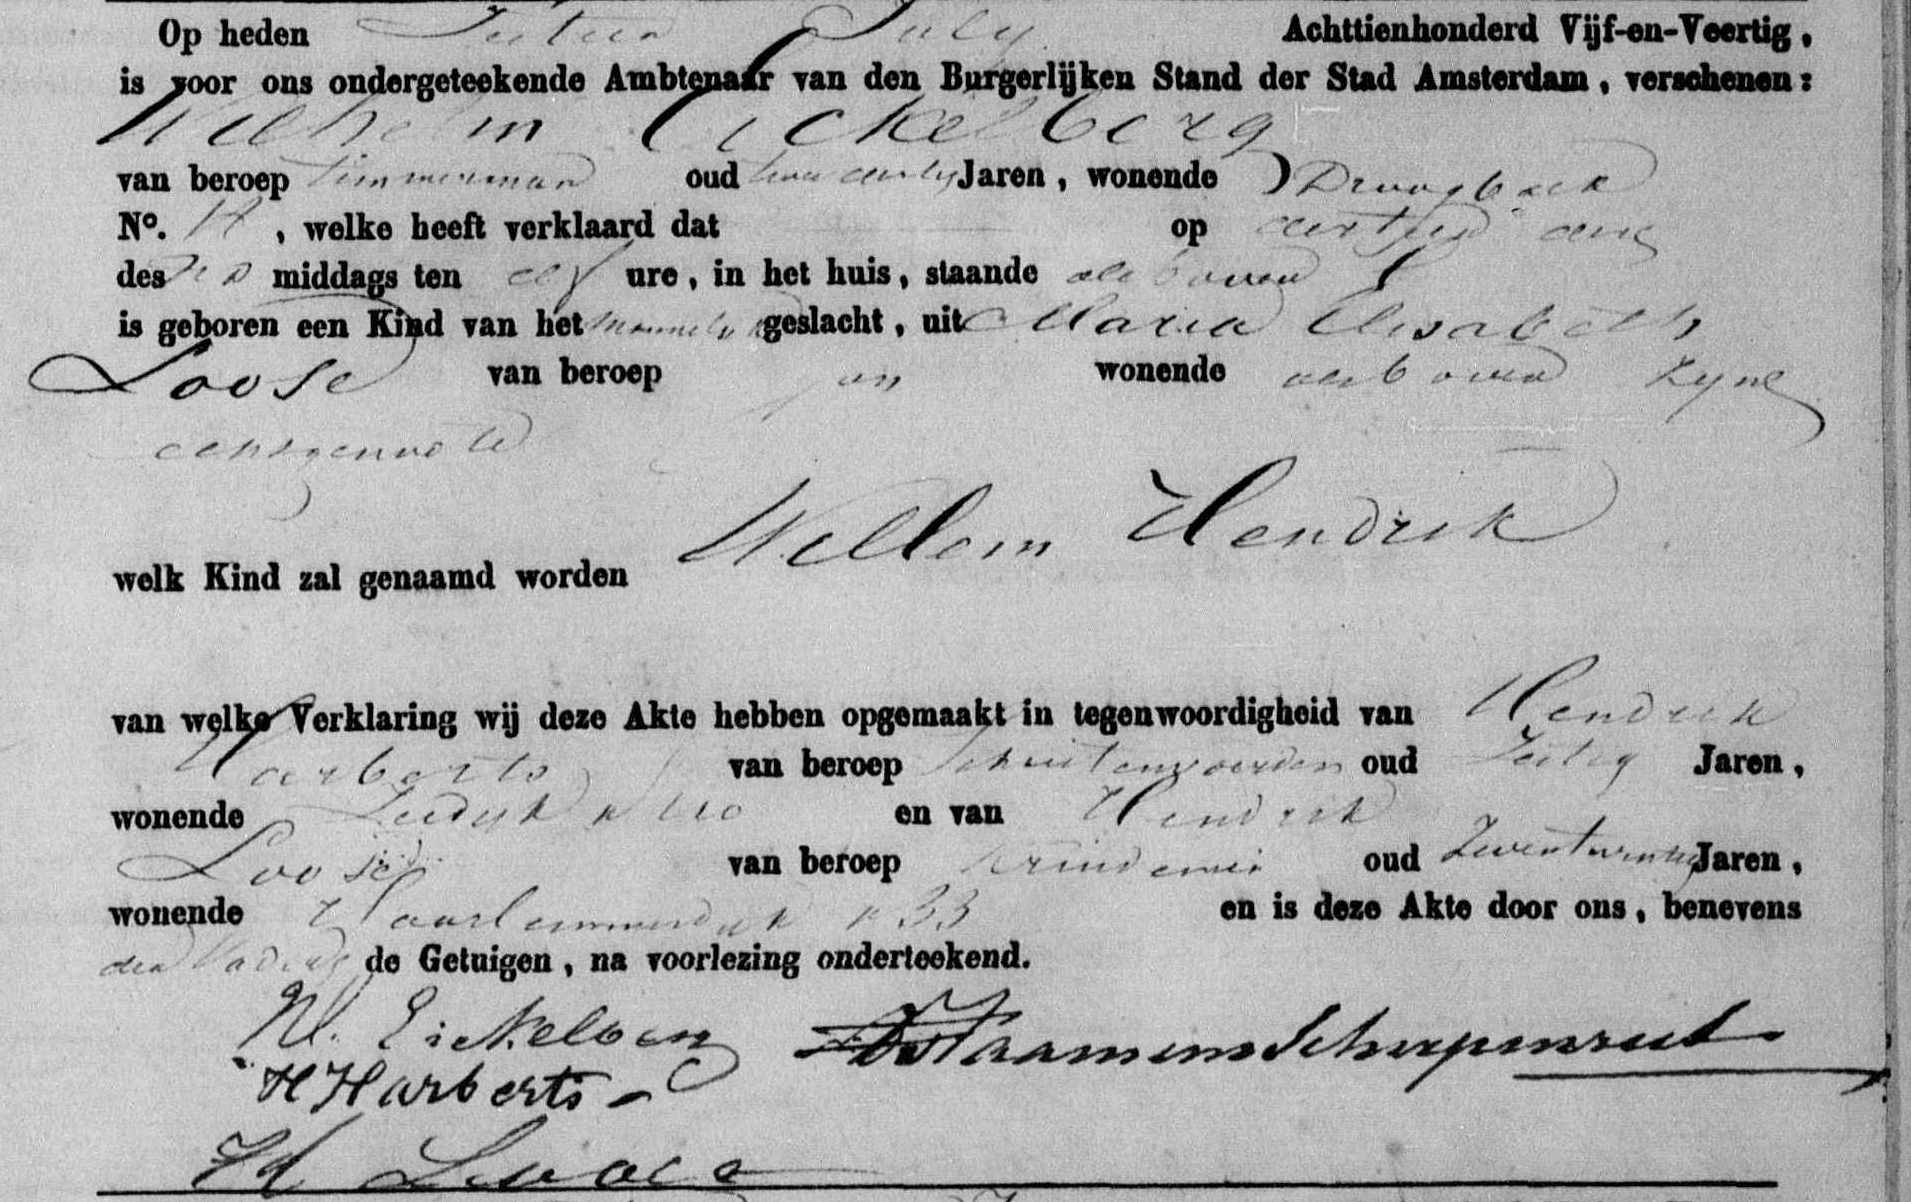 Op heden July Achttienhonderd Vijf-en-Veertig,
is voor ons ondergeteekende Ambtenaar van den Burgerlijken Stand der Stad Amsterdam, verschenen:
Wilhelm Eickelberg
van beroep timmerman oud Jaren, wonende Droogbak
No. , welke heeft verklaard dat op dertien dezer
des middags ten elf ure, in het huis, staande als boven
is geboren een Kind van het mannelyk geslacht, uit Maria Elisabeth
Loose van beroep gen wonende als boven zyne
echtgenoote
Willem Hendrik
welk Kind zal genaamd worden
van welke Verklaring wij deze Akte hebben opgemaakt in tegenwoordigheid van Hendrik
Harberts van beroep oud Jaren,
wonende Zeedyk n en van Hendrik
Loose van beroep kruidenier oud Zeventwintig Jaren,
wonende Haarlemmerdyk n 33 en is deze Akte door ons, benevens
den Vader de Getuigen, na voorlezing onderteekend.
W. Eickelberg
H Harberts
H Loose